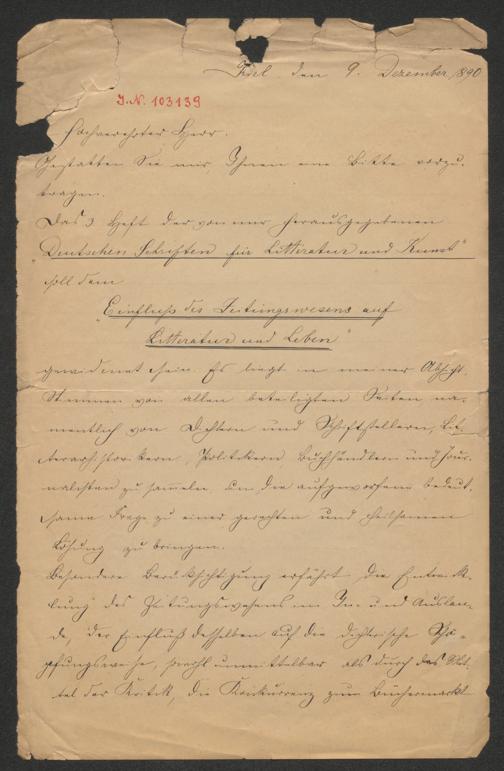 Kiel den 9. Dezember 1890
J.N. 103139
Hochverehrter Herr.
Gestatten Sie mir, Ihnen eine Bitte vorzu-
tragen.
Das 3 Heft der von mir herausgegebenen
"Deutschen Schriften für Litteratur und Kunst"
soll dem
"Einfluß des Zeitungswesens auf
Litteratur und Leben"
gewidmet sein. Es liegt in meiner Absicht,
Stimmen von allen beteiligten Seiten na-
mentlich von Dichtern und Schriftstellern, Lit-
terarhistorikern, Politikern Buchhändlern und Jour-
nalisten zu sammeln, um die aufgeworfene bedeut-
same Frage zu einer gerechten und heilsamen
Lösung zu bringen.
Besondere Berücksichtigung erfährt die Entwick-
lung des Zeitungswesens im In- und Auslan-
de, der Einfluß desselben auf die dichterische Schö-
pfungsweise, sowohl unmittelbar als durch das Mit-
tel der Kritik, die Konkurrenz zum Büchermarkt